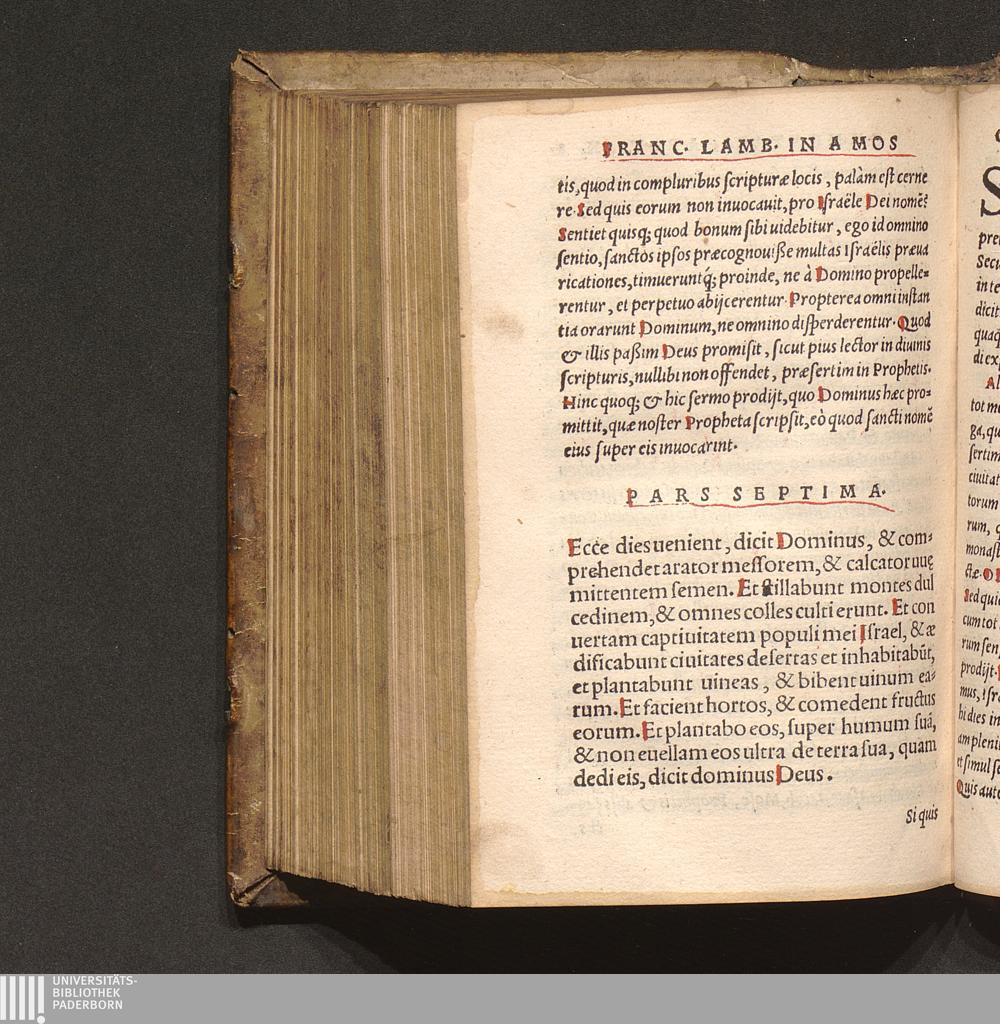 FRANC. LAMB. IN AMOS
tis, quod in compluribus scripturæ locis, palàm est cerne
re. Sed quis eorum non inuocauit, pro Israële Dei nomē?
Sentiet quisq; quod bonum sibi uidebitur, ego id omnino
sentio, sanctos ipsos præcognouisse multas Israëlis præua
ricationes, timueruntq́; proinde, ne à Domino propelle-
rentur, et perpetuo abijcerentur. Propterea omni instan
tia orarunt Dominum, ne omnino disperderentur. Quod
& illis paßim Deus promisit, sicut pius lector in diuinis
scripturis, nullibi non offendet, præsertim in Prophetis.
Hinc quoq; & hic sermo prodijt, quo Dominus hæc pro-
mittit, quæ noster Propheta scripsit, eò quod sancti nomē
eius super eis inuocarint.
PARS SEPTIMA.
Ecce dies uenient, dicit Dominus, & com-
prehendet arator messorem, & calcator uuę
mittentem semen. Et stillabunt montes dul
cedinem, & omnes colles culti erunt. Et con
uertam captiuitatem populi mei Israel, & æ
dificabunt ciuitates desertas et inhabitabūt,
et plantabunt uineas, & bibent uinum ea-
rum. Et facient hortos, & comedent fructus
eorum. Et plantabo eos, super humum suā,
& non euellam eos ultra de terra sua, quam
dedi eis, dicit dominus Deus.
Si quis
S
pre
Secu
in te
dicit
quaq
di ex
Al
tot m
ga, qu
sertim
ciuitat
torum
rum, q
monast
ctæ.
Sed quie
cum tot
rum sen
prodijt.
mus, Isr
hi dies in
am pleni
et simul se
Quis aute
UNIVERSITÄTS-
BIBLIOTHEK
PADERBORN